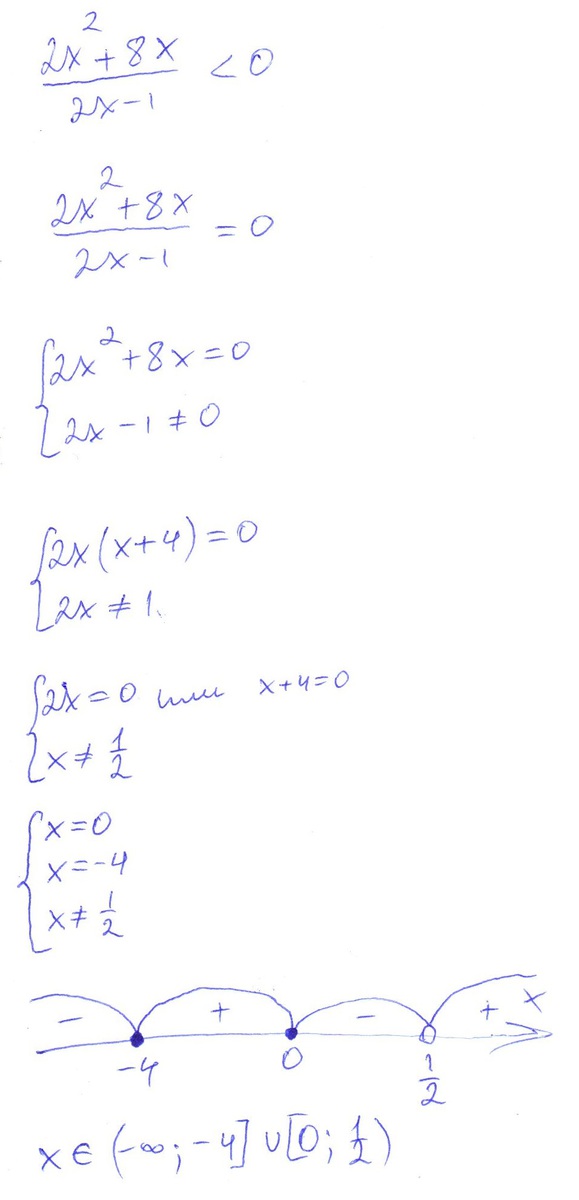 (2x²+8x)/(2x-1) < 0
(2x²+8x)/(2x-1) = 0
{2x²+8x=0
{2x-1≠0
{2x(x+4)=0
{2x≠1
{2x=0 или x+4=0
{x≠1/2
{x=0
{x=-4
{x≠1/2
- + - + x
-4 0 1/2
x∈(-∞;-4]∪[0;1/2)